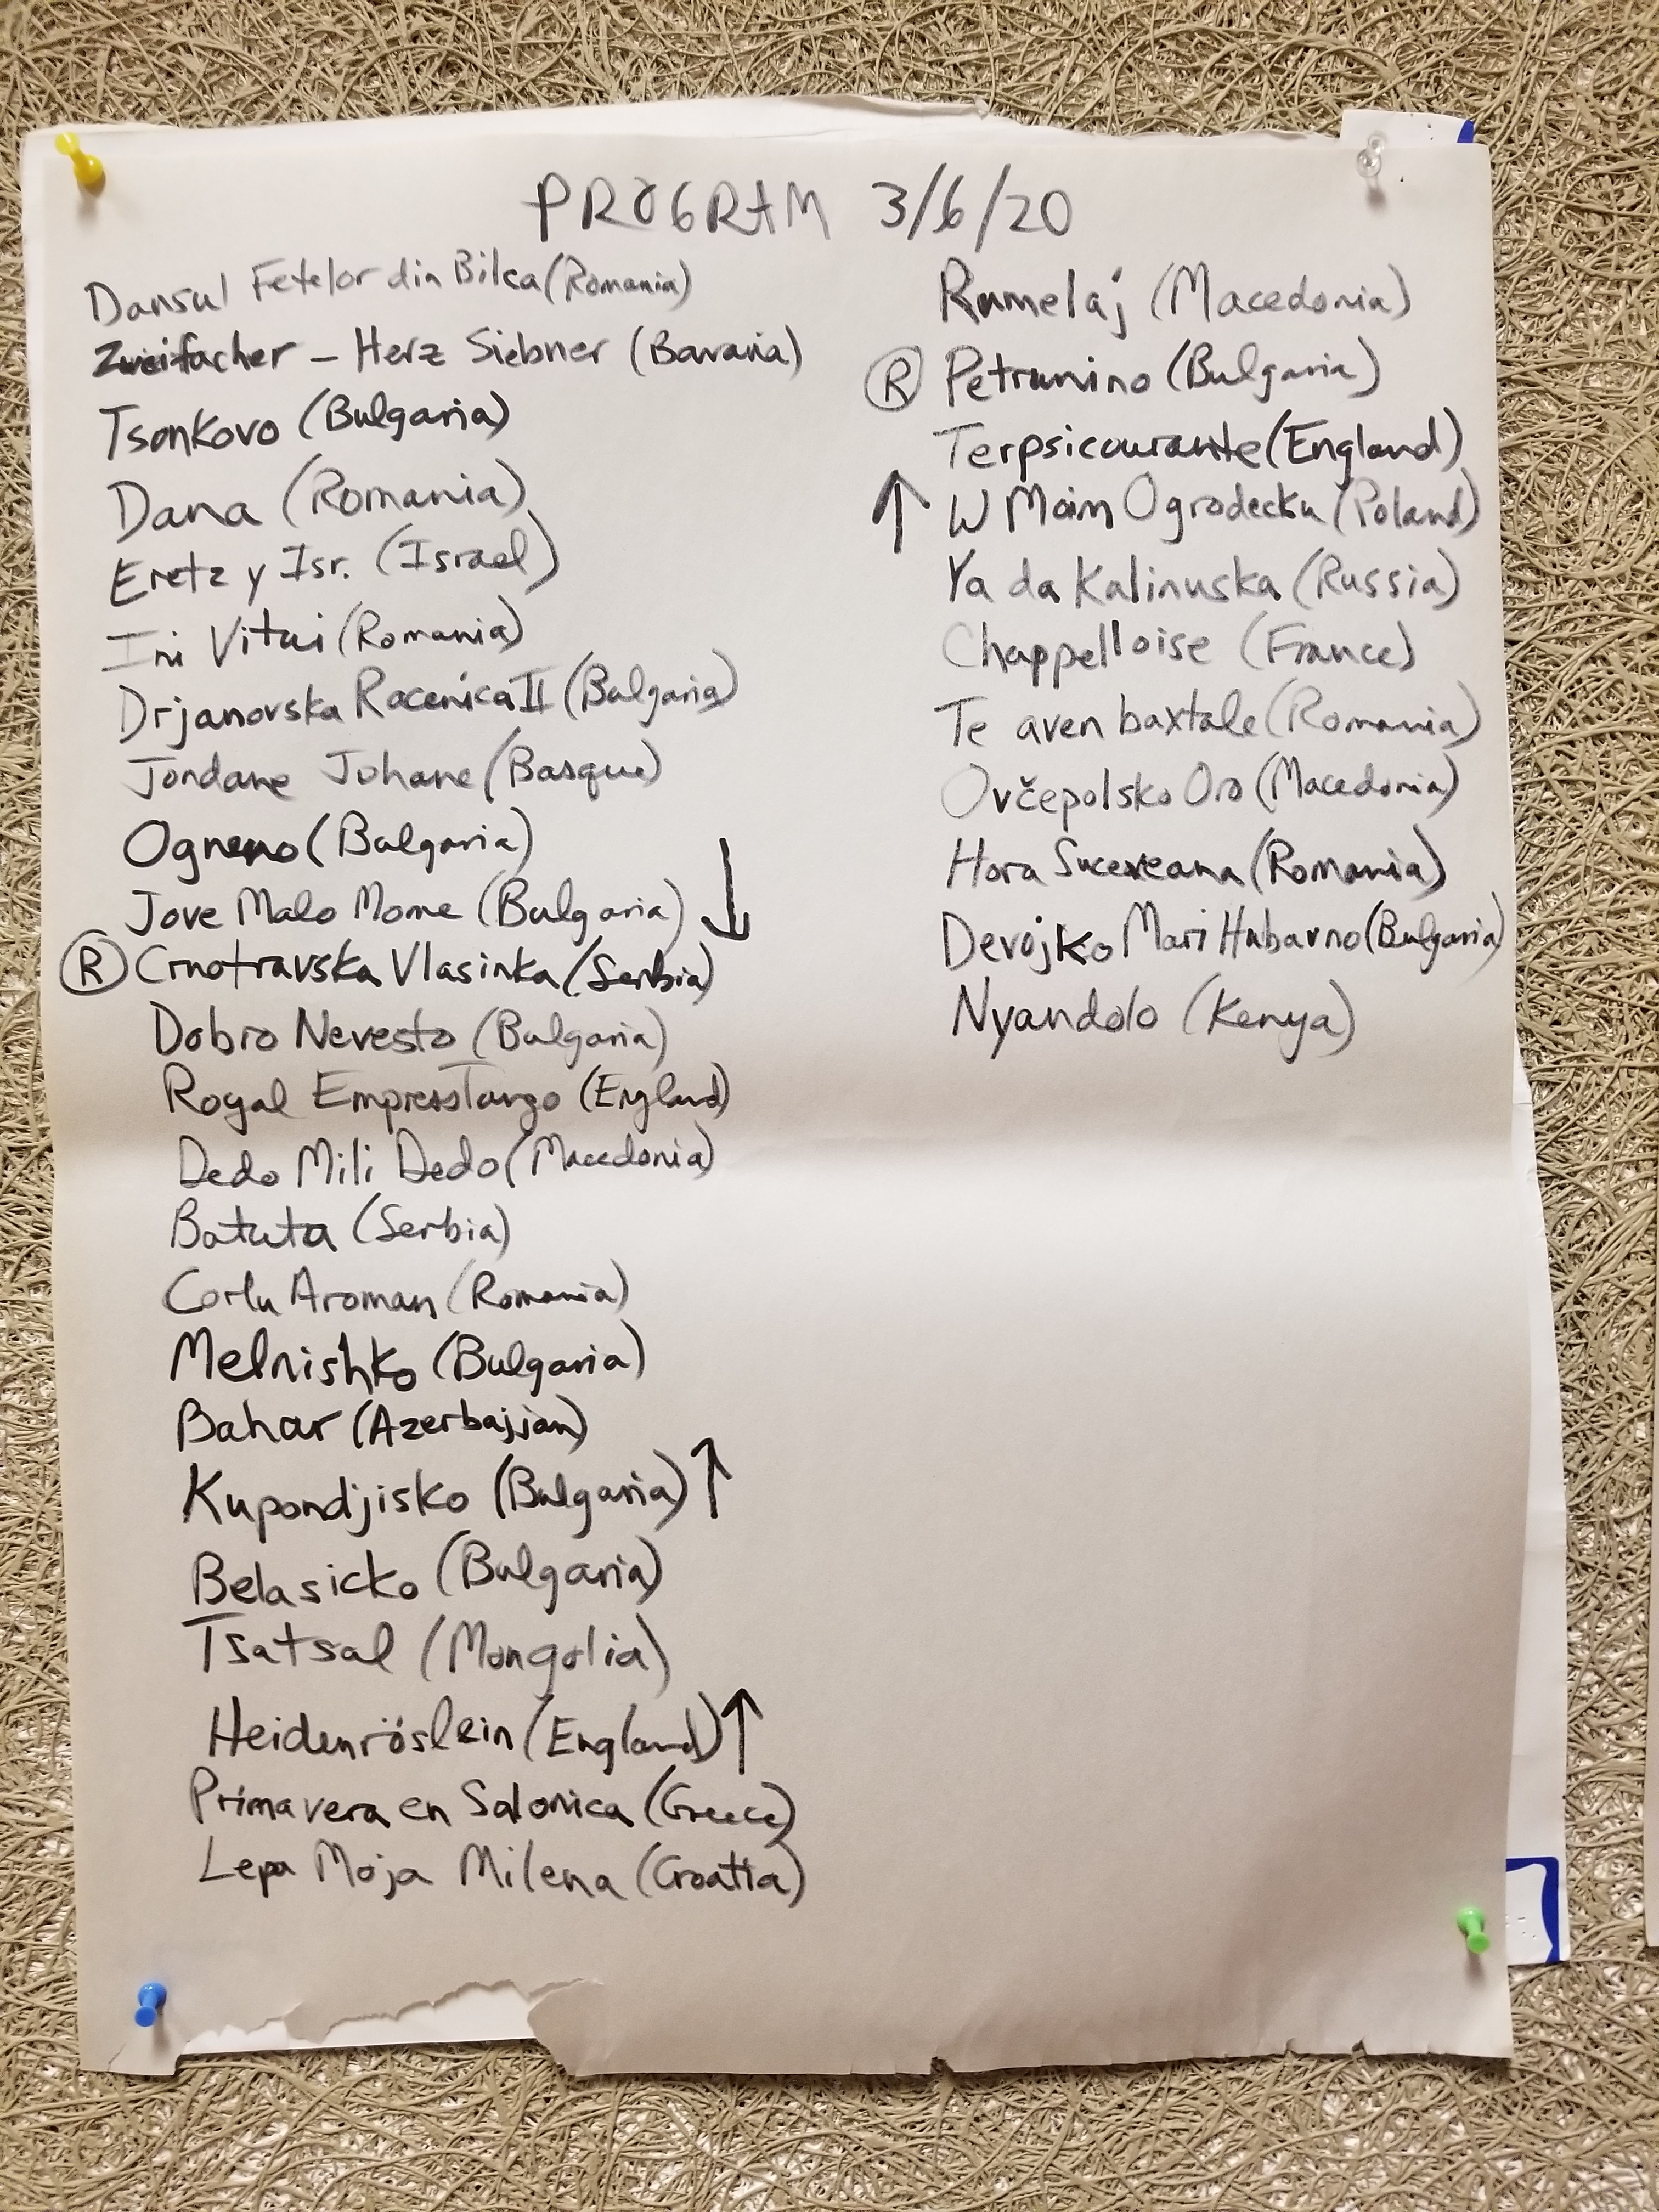 PROGRAM 3/6/20
Dansul Fetelor din Bilca (Romania)
Zweifacher - Herz Siebner (Bavaria)
Tsonkovo (Bulgaria)
Dana (Romania)
Eretz y Isr. (Israel)
Ini Vitui (Romania)
Drjanovska Racenica II (Bulgaria)
Jondane Johane (Basque)
Ogneno (Bulgaria)
Jove Malo Mome (Bulgaria) ↓
Ⓡ Crnotravska Vlasinka (Serbia)
Dobro Nevesto (Bulgaria)
Royal Empress Tango (England)
Dedo Mili Dedo (Macedonia)
Batuta (Serbia)
Corlu Aroman (Romania)
Melnishko (Bulgaria)
Bahar (Azerbajjan)
Kupondjisko (Bulgaria) ↑
Belasicko (Bulgaria)
Tsatsal (Mongolia)
Heidenröslein (England) ↑
Primavera en Salonica (Greece)
Lepa Moja Milena (Croatia)
Rumelaj (Macedonia)
Ⓡ Petrunino (Bulgaria)
Terpsicourante (England)
↑ W Moim Ogrodecku (Poland)
Ya da Kalinuska (Russia)
Chappelloise (France)
Te aven baxtale (Romania)
Ovčepolsko Oro (Macedonia)
Hora Suceveana (Romania)
Devojko Mari Hubavno (Bulgaria)
Nyandolo (Kenya)